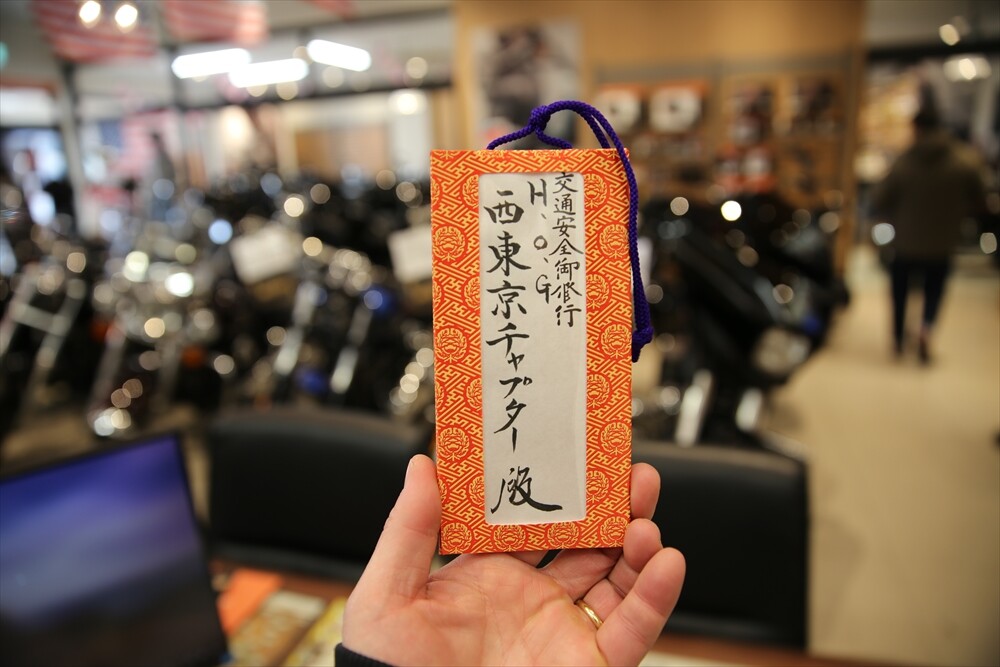 交通安全御修行
H、O、G
西東京チャプター 殿